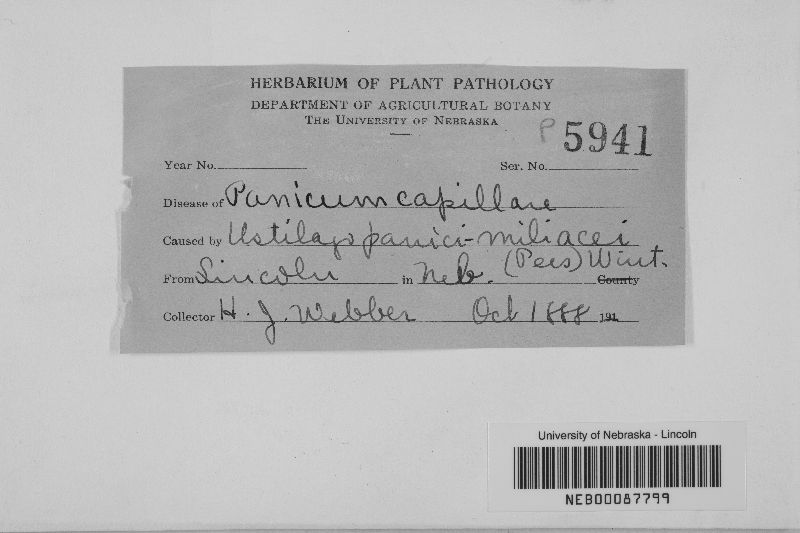 HERBARIUM OF PLANT PATHOLOGY
DEPARTMENT OF AGRICULTURAL BOTANY
THE UNIVERSITY OF NEBRASKA
P 5941
Year No. Ser. No.
Disease of Panicum capillare
Caused by Ustilago panici-miliacei
(Pers) Wint.
From Lincoln in Neb. County
Collector H. J. Webber Oct 1888 191
University of Nebraska - Lincoln
NEB00087799